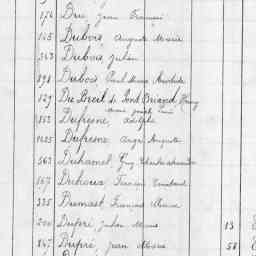 174 Dru Jean François
145 Dubois Auguste Marie
343 Dubois Julien
898 Dubois Paul Marie
129 Du Breil de Pont Briand Henry
Marie Joseph
852 Dufresne, Adolphe
1025 Dufresne Ange Auguste
563 Duhamel Guy Charles Alexandre
567 Duhoux François
235 Dumast François Marie
200 Dupré Julien Marie 13
847 Dupré Jean Marie 58